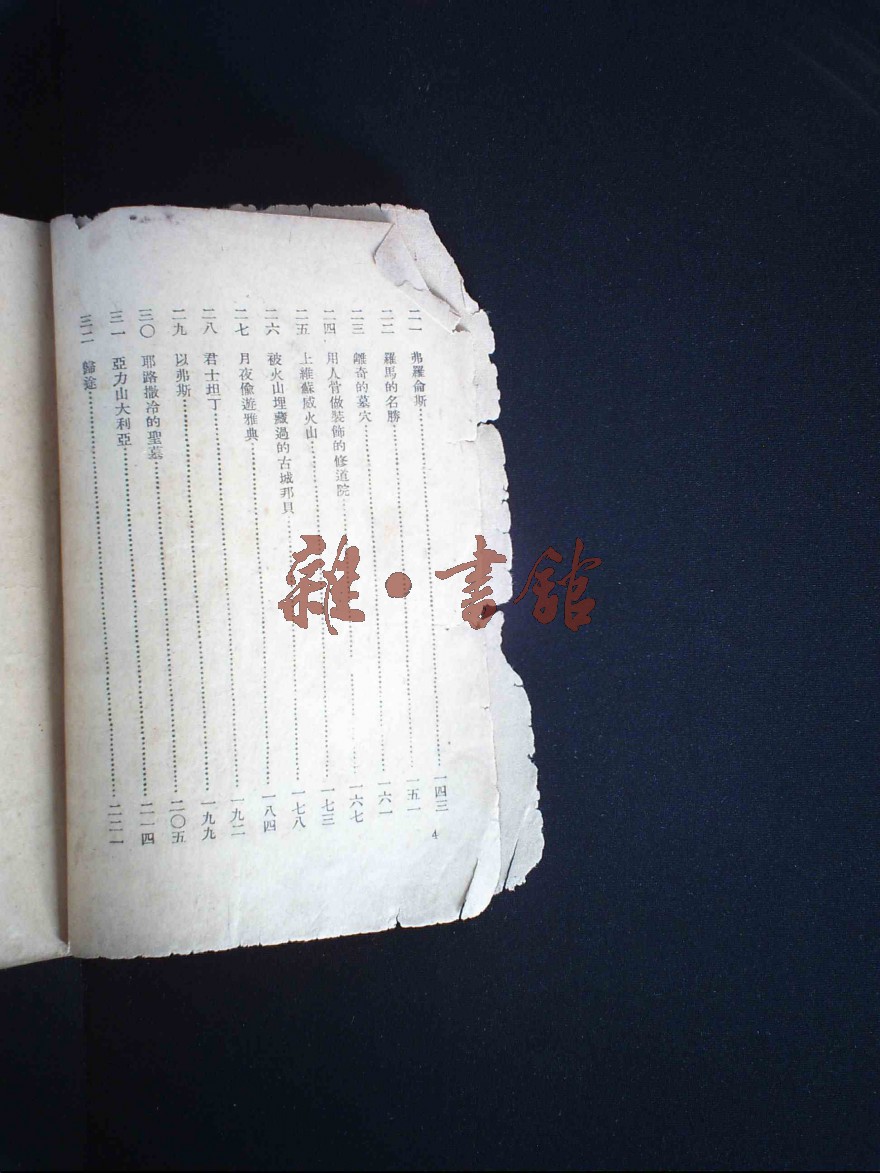 二一 弗羅倫斯………一四三
二二 羅馬的名勝………一五一
二三 離奇的墓穴………一六一
二四 用人骨做裝飾的修道院………一六七
二五 上維蘇威火山………一七三
二六 被火山埋藏過的古城邦貝………一七八
二七 月夜偸遊雅典………一八四
二八 君士坦丁………一九二
二九 以弗斯………一九九
三〇 耶路撒冷的聖墓………二〇五
三一 亞力山大利亞………二一四
三二 歸途………二二一
4
雜•書館